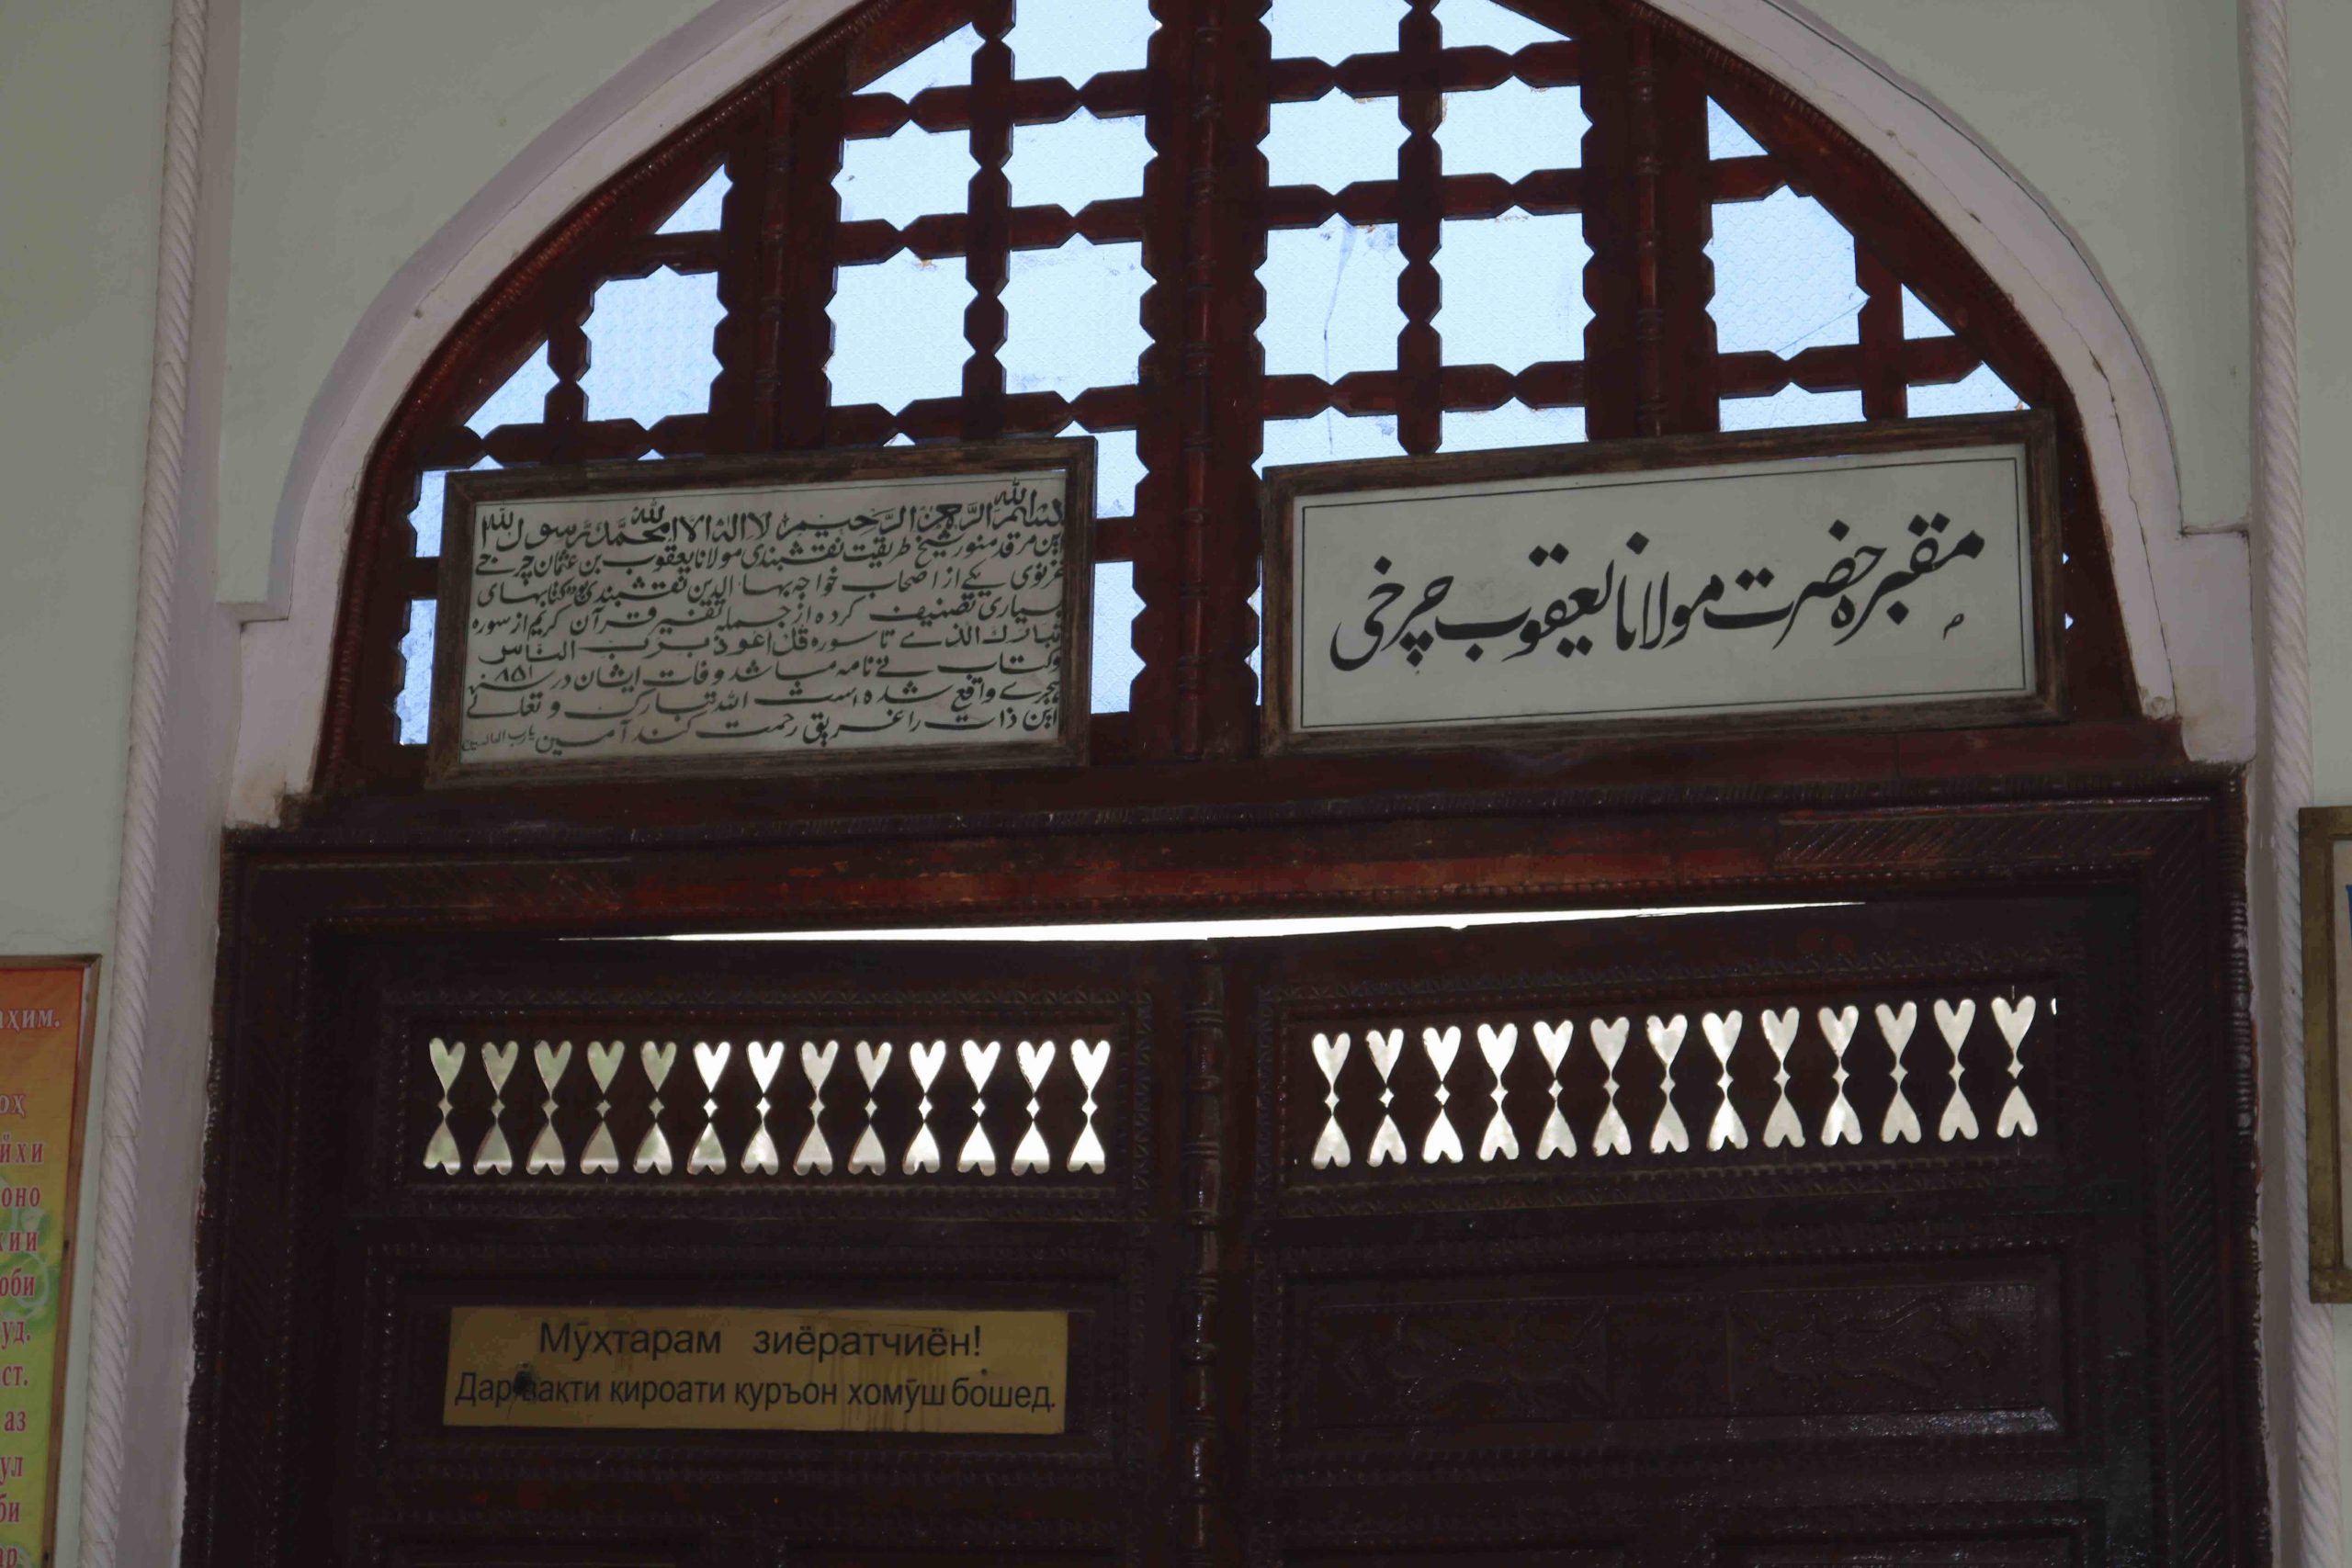 مقبره حضرت مولانا یعقوب چرخی
بسم الله الرحمن الرحیم لا اله الا الله محمد رسول الله
این مرقد منور شیخ طریقت نقشبندی مولانا یعقوب بن عثمان چرخے
غزنوی یکے از اصحاب خواجه بها الدین نقشبندی کتابهای
بسیاری تصنیف کرده از جمله تفسیر قرآن کریم از سوره
تبارک الذے تا سوره قل اعوذ برب الناس
وکتاب نامه میباشد وفات ایشان در سنه ۸۵۱
هجرے واقع شده است الله تبارک و تعالے
این ذات را غریق رحمت کند آمین یارب العالمین
Мӯҳтарам зиёратчиён!
Дар вақти қироати қуръон хомӯш бошед.
аҳим.
оҳ
йхи
оно
хии
оби
уд.
ст.
аз
ул
би
ар